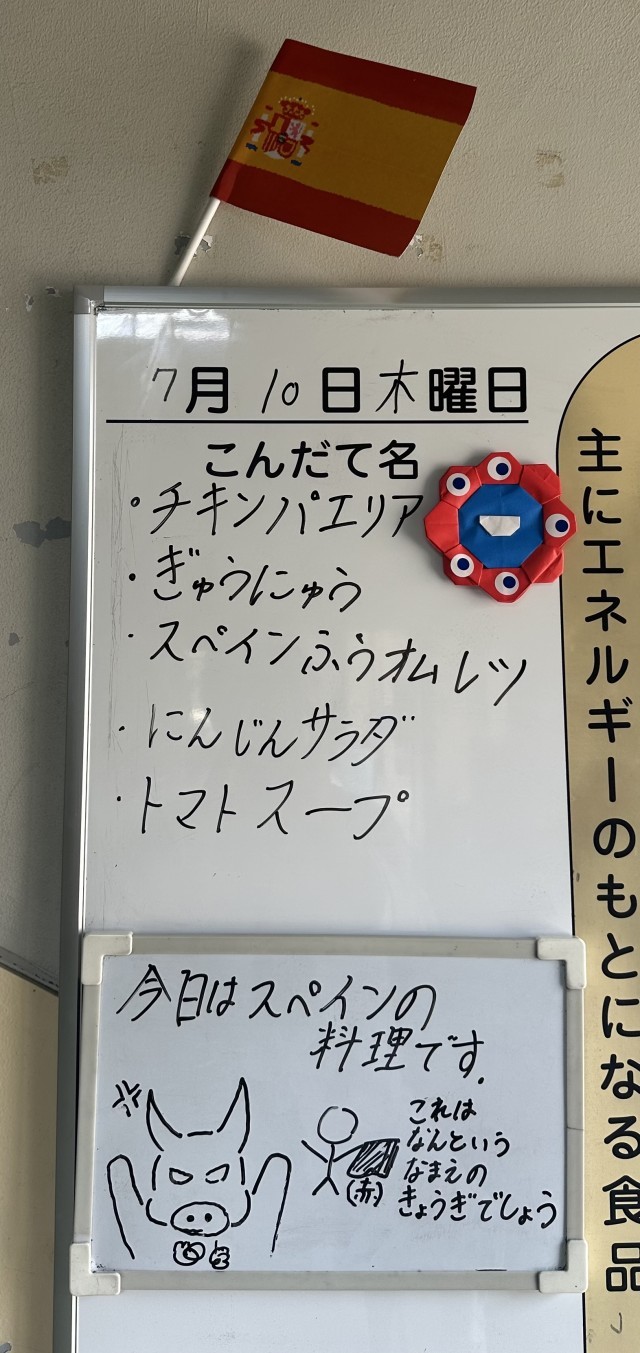 7月10日木曜日
こんだて名
・チキンパエリア
・ぎゅうにゅう
・スペインふうオムレツ
・にんじんサラダ
・トマトスープ
主にエネルギーのもとになる食品
今日はスペインの
料理です.
これは
なんという
なまえの
きょうぎでしょう
(赤)